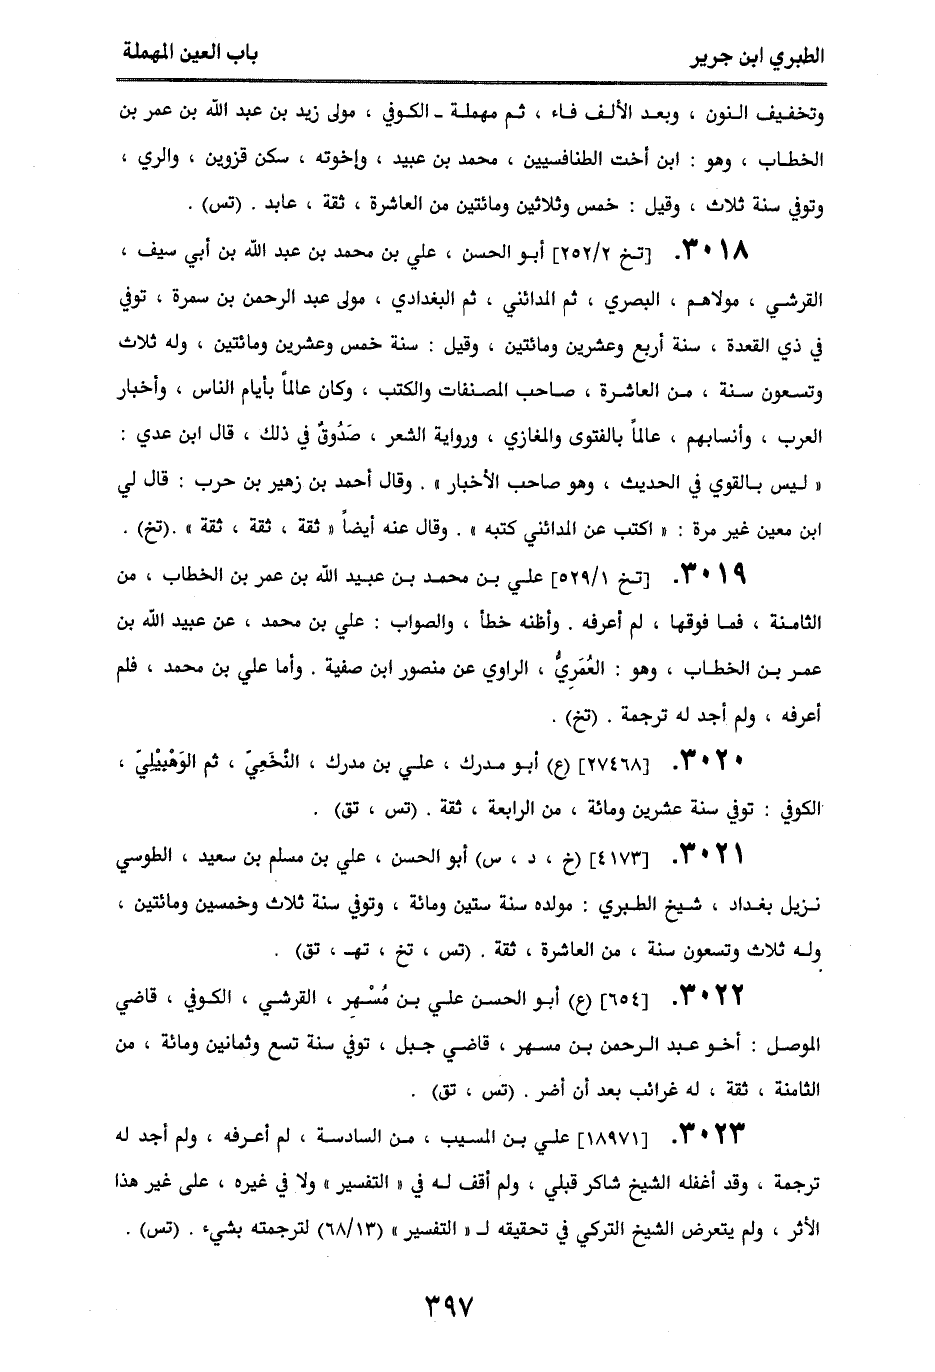 الطبري ابن جرير باب العين المهملة
وتخفيف النون ، وبعد الألف فاء ، ثم مهملة ـ الكوفي ، مولى زيد بن عبد الله بن عمر بن
الخطاب ، وهو : ابن أخت الطنافسيين ، محمد بن عبيد ، وإخوته ، سكن قزوين ، والري ،
وتوفي سنة ثلاث ، وقيل : خمس وثلاثين ومائتين من العاشرة ، ثقة ، عابد . (تس) .
٣٠١٨. [تخ ٢٥٢/٢] أبو الحسن ، علي بن محمد بن عبد الله بن أبي سيف ،
القرشي ، مولاهم ، البصري ، ثم المدائني ، ثم البغدادي ، مولى عبد الرحمن بن سمرة ، توفي
في ذي القعدة ، سنة أربع وعشرين ومائتين ، وقيل : سنة خمس وعشرين ومائتين ، وله ثلاث
وتسعون سنة ، من العاشرة ، صاحب المصنفات والكتب ، وكان عالماً بأيام الناس ، وأخبار
العرب ، وأنسابهم ، عالماً بالفتوى والمغازي ، ورواية الشعر ، صَدُوقٌ في ذلك ، قال ابن عدي :
« ليس بالقوي في الحديث ، وهو صاحب الأخبار » . وقال أحمد بن زهير بن حرب : قال لي
ابن معين غير مرة : « اكتب عن المدائني كتبه » . وقال عنه أيضاً « ثقة ، ثقة ، ثقة » .(تخ) .
٣٠١٩. [تخ ٥٢٩/١] علي بن محمد بن عبيد الله بن عمر بن الخطاب ، من
الثامنة ، فما فوقها ، لم أعرفه . وأظنه خطأ ، والصواب : علي بن محمد ، عن عبيد الله بن
عمر بن الخطاب ، وهو : العُمَرِيُّ ، الراوي عن منصور ابن صفية . وأما علي بن محمد ، فلم
أعرفه ، ولم أجد له ترجمة . (تخ) .
٣٠٢٠. [٢٧٤٦٨] (ع) أبو مدرك ، علي بن مدرك ، النُّخَعِيّ ، ثم الوَهْبِيْلِيّ ،
الكوفي : توفي سنة عشرين ومائة ، من الرابعة ، ثقة . (تس ، تق) .
٣٠٢١. [٤١٧٣] (خ ، د ، س) أبو الحسن ، علي بن مسلم بن سعيد ، الطوسي
نزيل بغداد ، شيخ الطبري : مولده سنة ستين ومائة ، وتوفي سنة ثلاث وخمسين ومائتين ،
وله ثلاث وتسعون سنة ، من العاشرة ، ثقة . (تس ، تخ ، تهـ ، تق) .
٣٠٢٢. [٦٥٤] (ع) أبو الحسن علي بن مُسْهِر ، القرشي ، الكوفي ، قاضي
الموصل : أخو عبد الرحمن بن مسهر ، قاضي جبل ، توفي سنة تسع وثمانين ومائة ، من
الثامنة ، ثقة ، له غرائب بعد أن أضر . (تس ، تق) .
٣٠٢٣. [١٨٩٧١] علي بن المسيب ، من السادسة ، لم أعرفه ، ولم أجد له
ترجمة ، وقد أغفله الشيخ شاكر قبلي ، ولم أقف له في « التفسير » ولا في غيره ، على غير هذا
الأثر ، ولم يتعرض الشيخ التركي في تحقيقه لـ « التفسير » (٦٨/١٣) لترجمته بشيء . (تس) .
٣٩٧